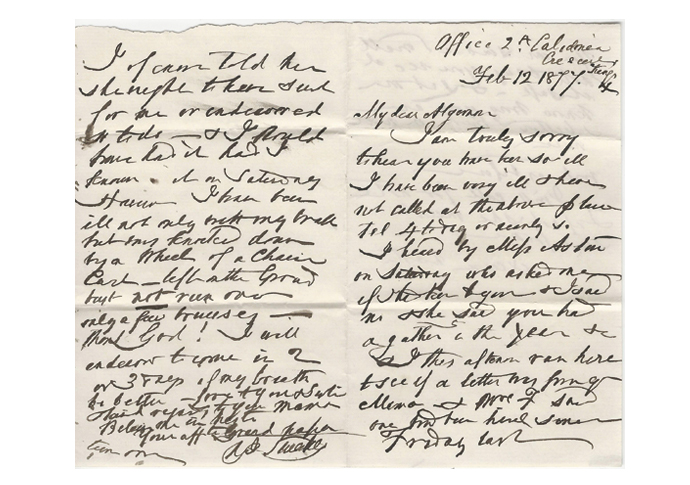 Office 2A Caledonia
Crescent
Feb 12 1877.
My dear Algernon
I am truly sorry
to hear you have been so ill
I have been very ill & have
not called at the above place
till to day or nearly so.
I heard by Miss Aston
on Saturday who asked me
if &
me & she said you had
a gather in the &c
& I this afternoon ran here
to see if a letter was from
Mema &
one had been here since
Friday last
I of course told her
she ought to have sent
for me or endeavored
so to do — & I should
have had it had I
known it on Saturday
However I have been
ill not only with my breath
but was knocked down
by a Wheel of a Chaise
Cart — left on the Ground
but not run over
only a few bruises —
thank God! I will
endeavor to come in 2
or 3 days if my breath
be better — love to you &
& kind regards to your Mama
Believe me in haste
Your affte Grand papa
turn over